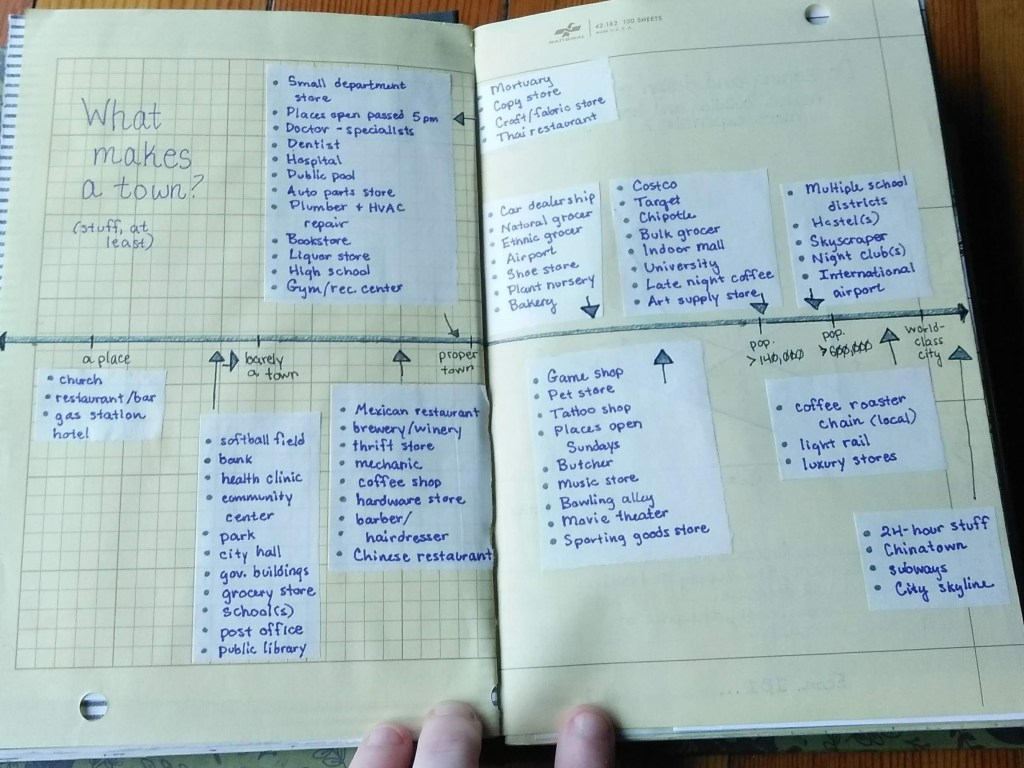 What
makes
a town?
(stuff, at
least)
• Small department
store
• Places open passed 5pm
• Doctor - specialists
• Dentist
• Hospital
• Public pool
• Auto parts store
• Plumber + HVAC
repair
• Bookstore
• Liquor store
• High school
• Gym/rec. center
a place
• church
• restaurant/bar
• gas station
hotel
barely
a town
• softball field
• bank
• health clinic
• community
center
• park
• city hall
• gov. buildings
• grocery store
• school(s)
• post office
• public library
proper
town
• Mexican restaurant
• brewery/winery
• thrift store
• mechanic
• coffee shop
• hardware store
• barber/
• hairdresser
• Chinese restaurant
NATIONAL
42-182 100 SHEETS
• Mortuary
• Copy store
• Craft/fabric store
• Thai restaurant
• Car dealership
• Natural grocer
• Ethnic grocer
• Airport
• Shoe store
• Plant nursery
• Bakery
• Costco
• Target
• Chipotle
• Bulk grocer
• Indoor mall
• University
• Late night coffee
• Art supply store
• Multiple school
districts
• Hostel(s)
• Skyscraper
• Night club(s)
• International
airport
pop.
>140,000
pop.
>600,000
world-
class
city
• Game shop
• Pet store
• Tattoo shop
• Places open
Sundays
• Butcher
• Music store
• Bowling alley
• Movie theater
• Sporting goods store
• coffee roaster
chain (local)
• light rail
• luxury stores
• 24-hour stuff
• Chinatown
• subways
• City skyline